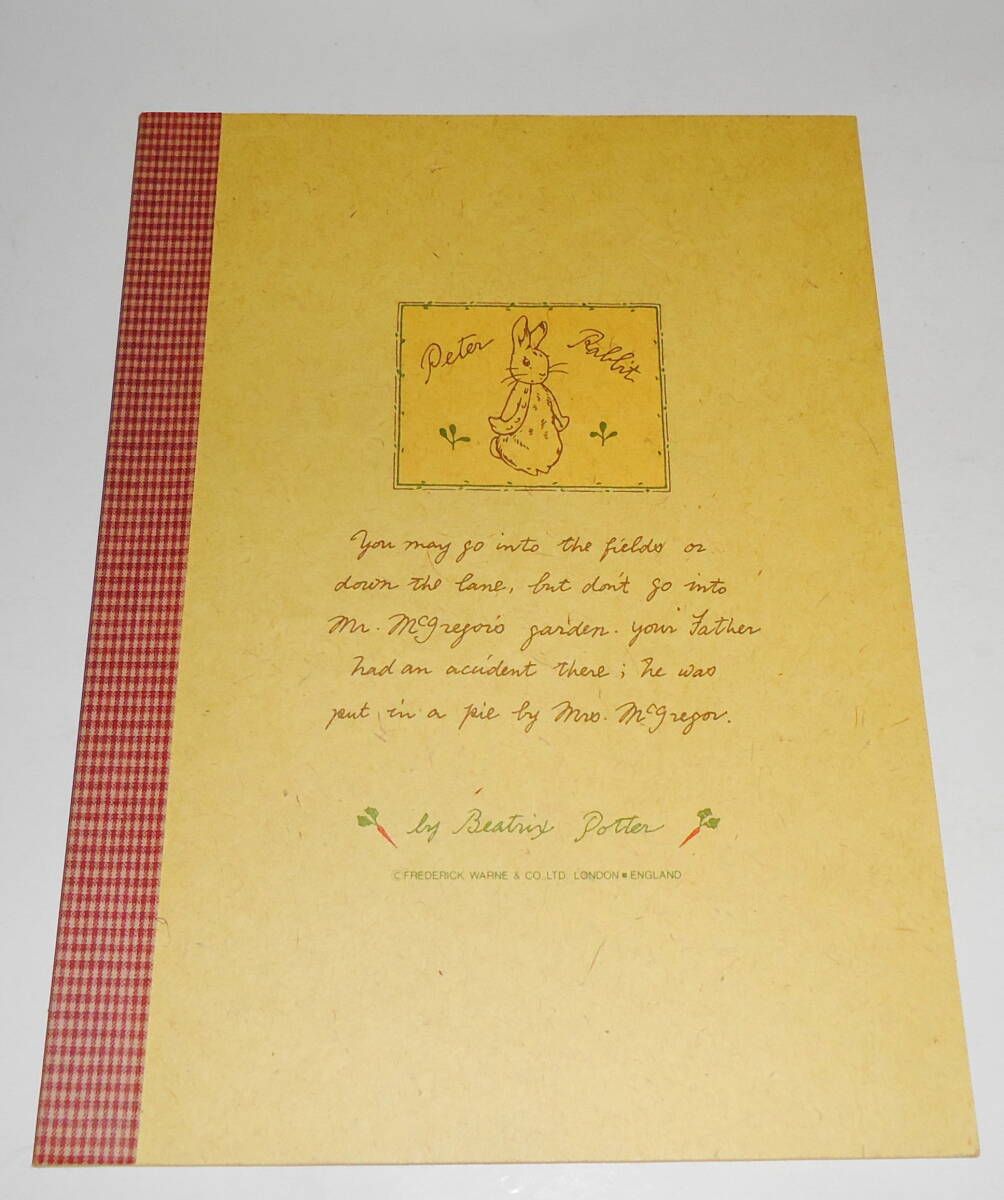 Peter Rabbit
You may go into the fields or
down the lane, but don't go into
Mr. McGregor's garden. your Father
had an accident there; he was
put in a pie by Mrs. McGregor.
by Beatrix Potter
© FREDERICK WARNE & CO. LTD. LONDON ■ ENGLAND